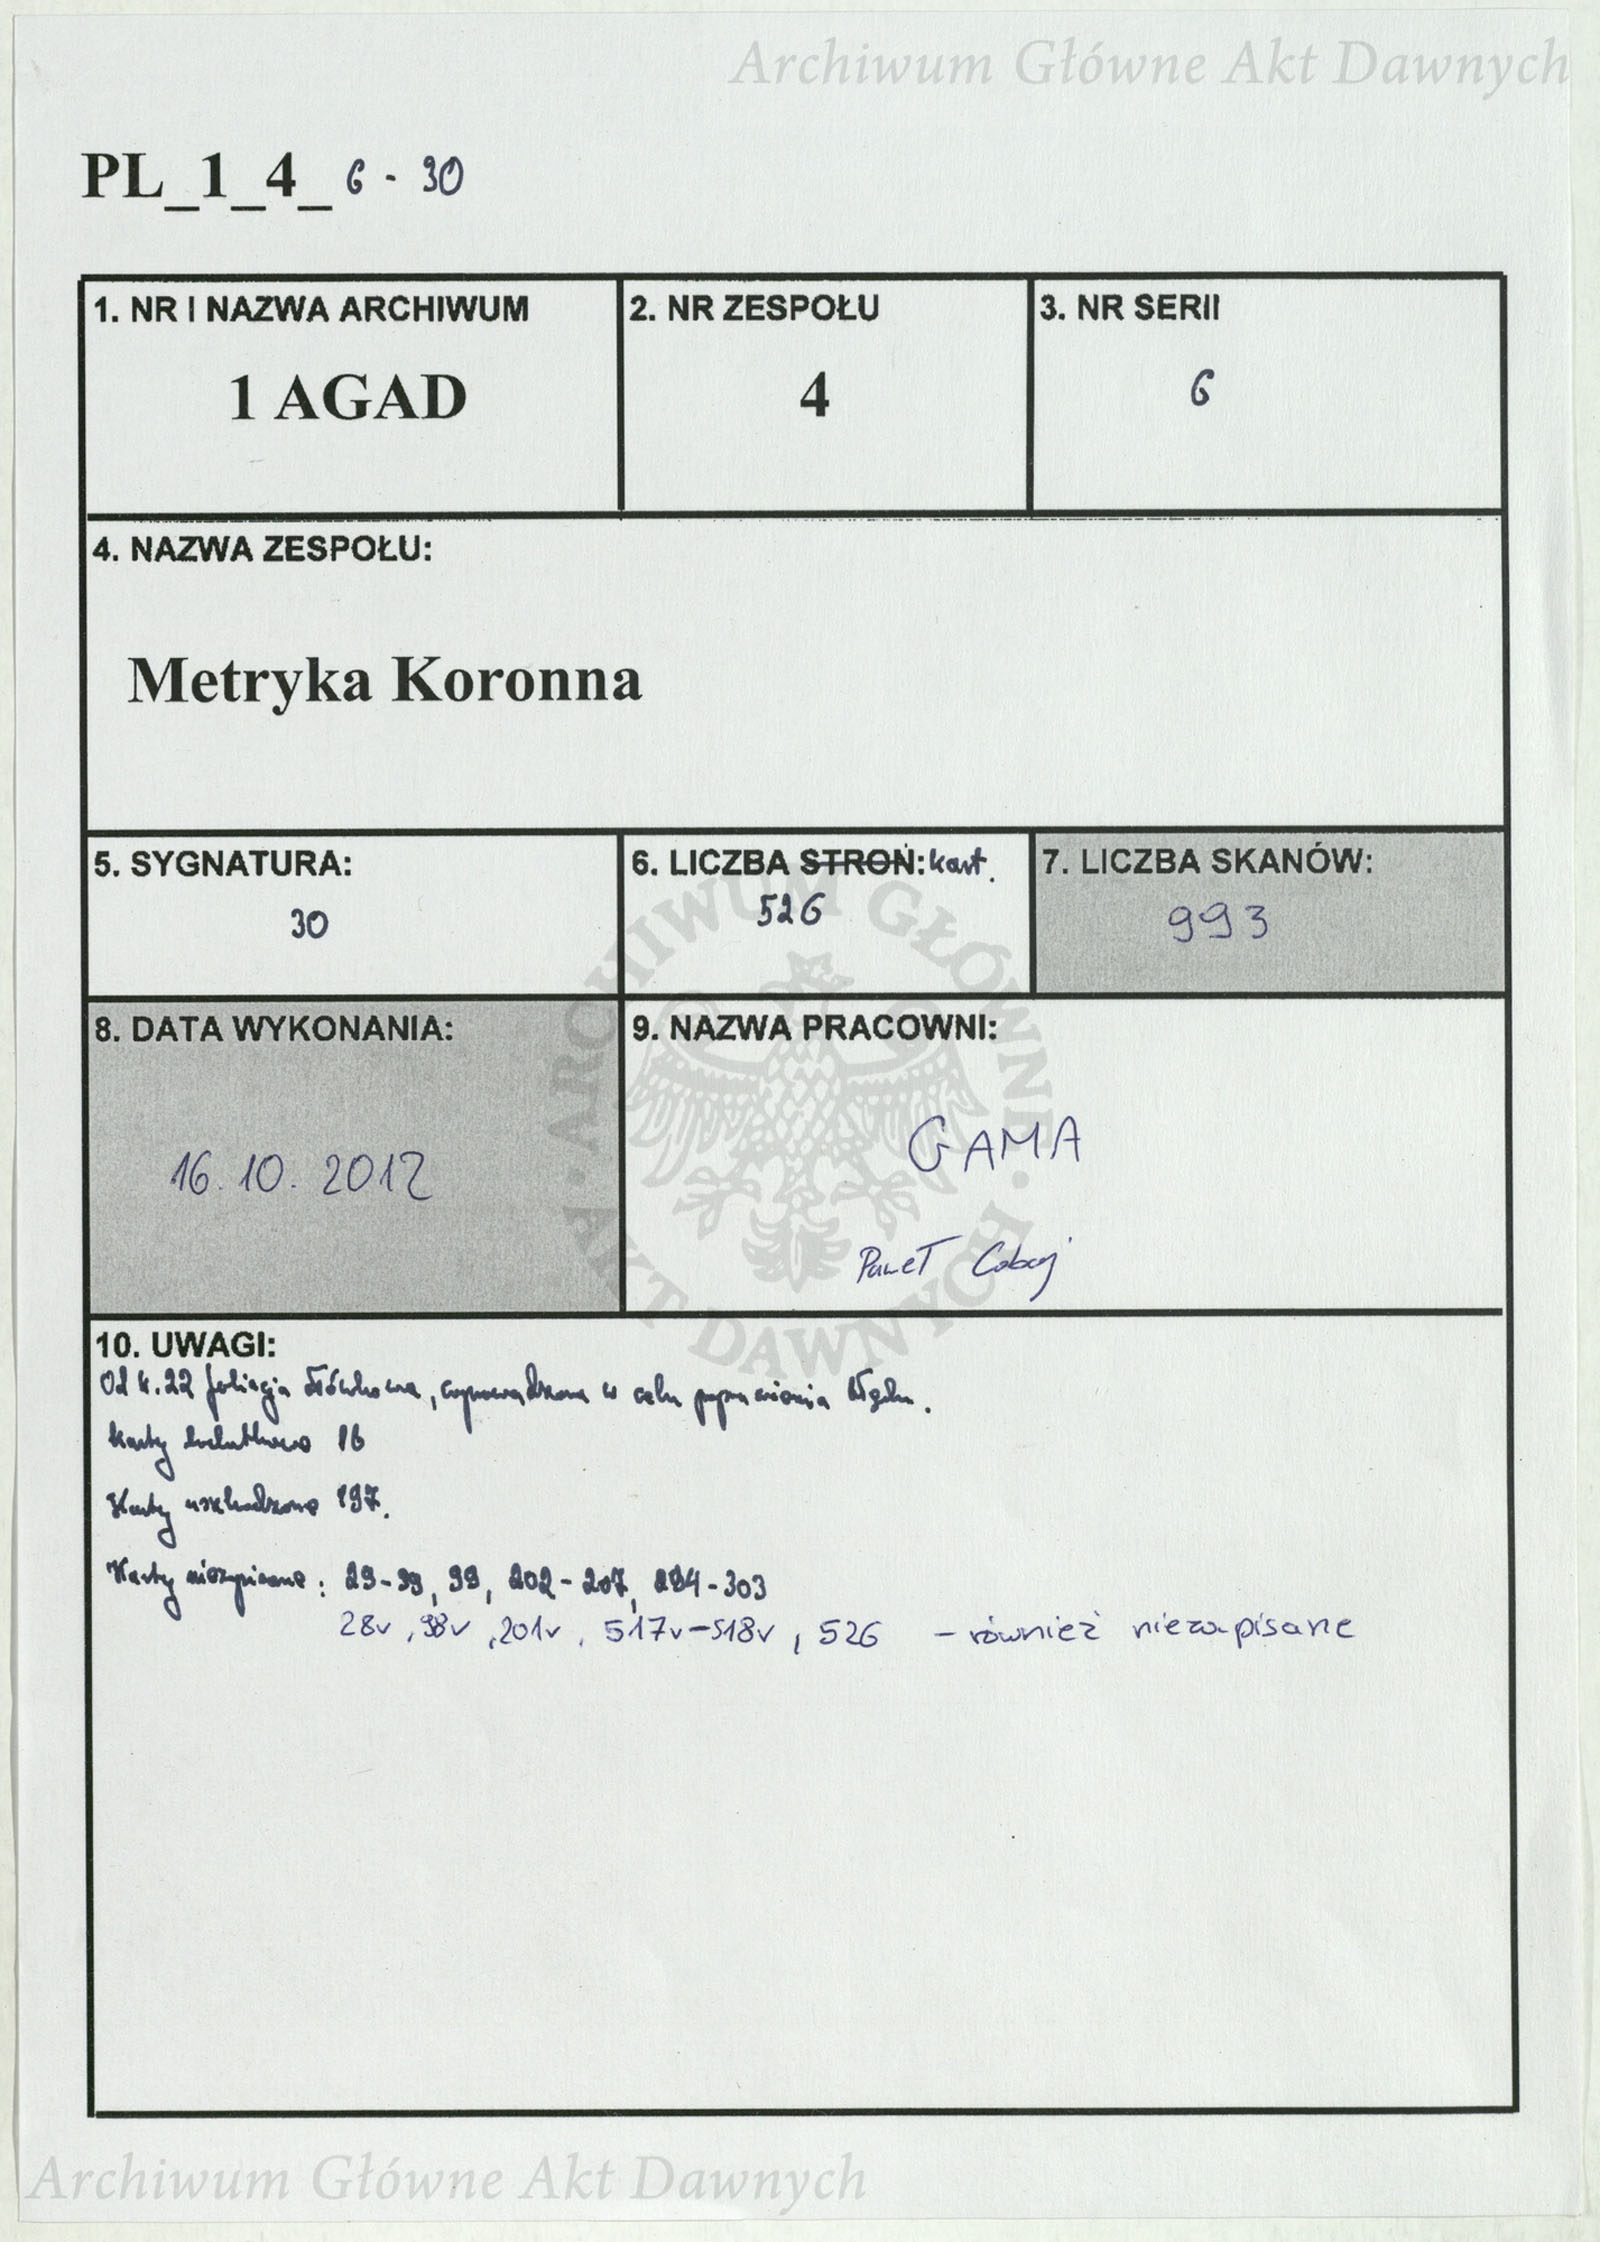 Archiwum Główne Akt Dawnych
PL_1_4_ 6 - 30
1. NR I NAZWA ARCHIWUM
1 AGAD
2. NR ZESPOŁU
4
3. NR SERII
6
4. NAZWA ZESPOŁU:
Metryka Koronna
5. SYGNATURA:
30
6. LICZBA STRON: kart.
526
7. LICZBA SKANÓW:
993
8. DATA WYKONANIA:
16.10.2012
9. NAZWA PRACOWNI:
GAMA
Paweł
ARCHIWUM GŁÓWNE · AKT DAWNYCH ·
10. UWAGI:
Od k. 22 foliacja ołówkowa, wprowadzona w celu poprawienia błędu.
Karty dodatkowe 16
Karty uszkodzone 197.
Karty niezapisane: 29-39, 99, 202-207, 294-303
28v, 98v, 201v, 517v-518v, 526 - również niezapisane
Archiwum Główne Akt Dawnych